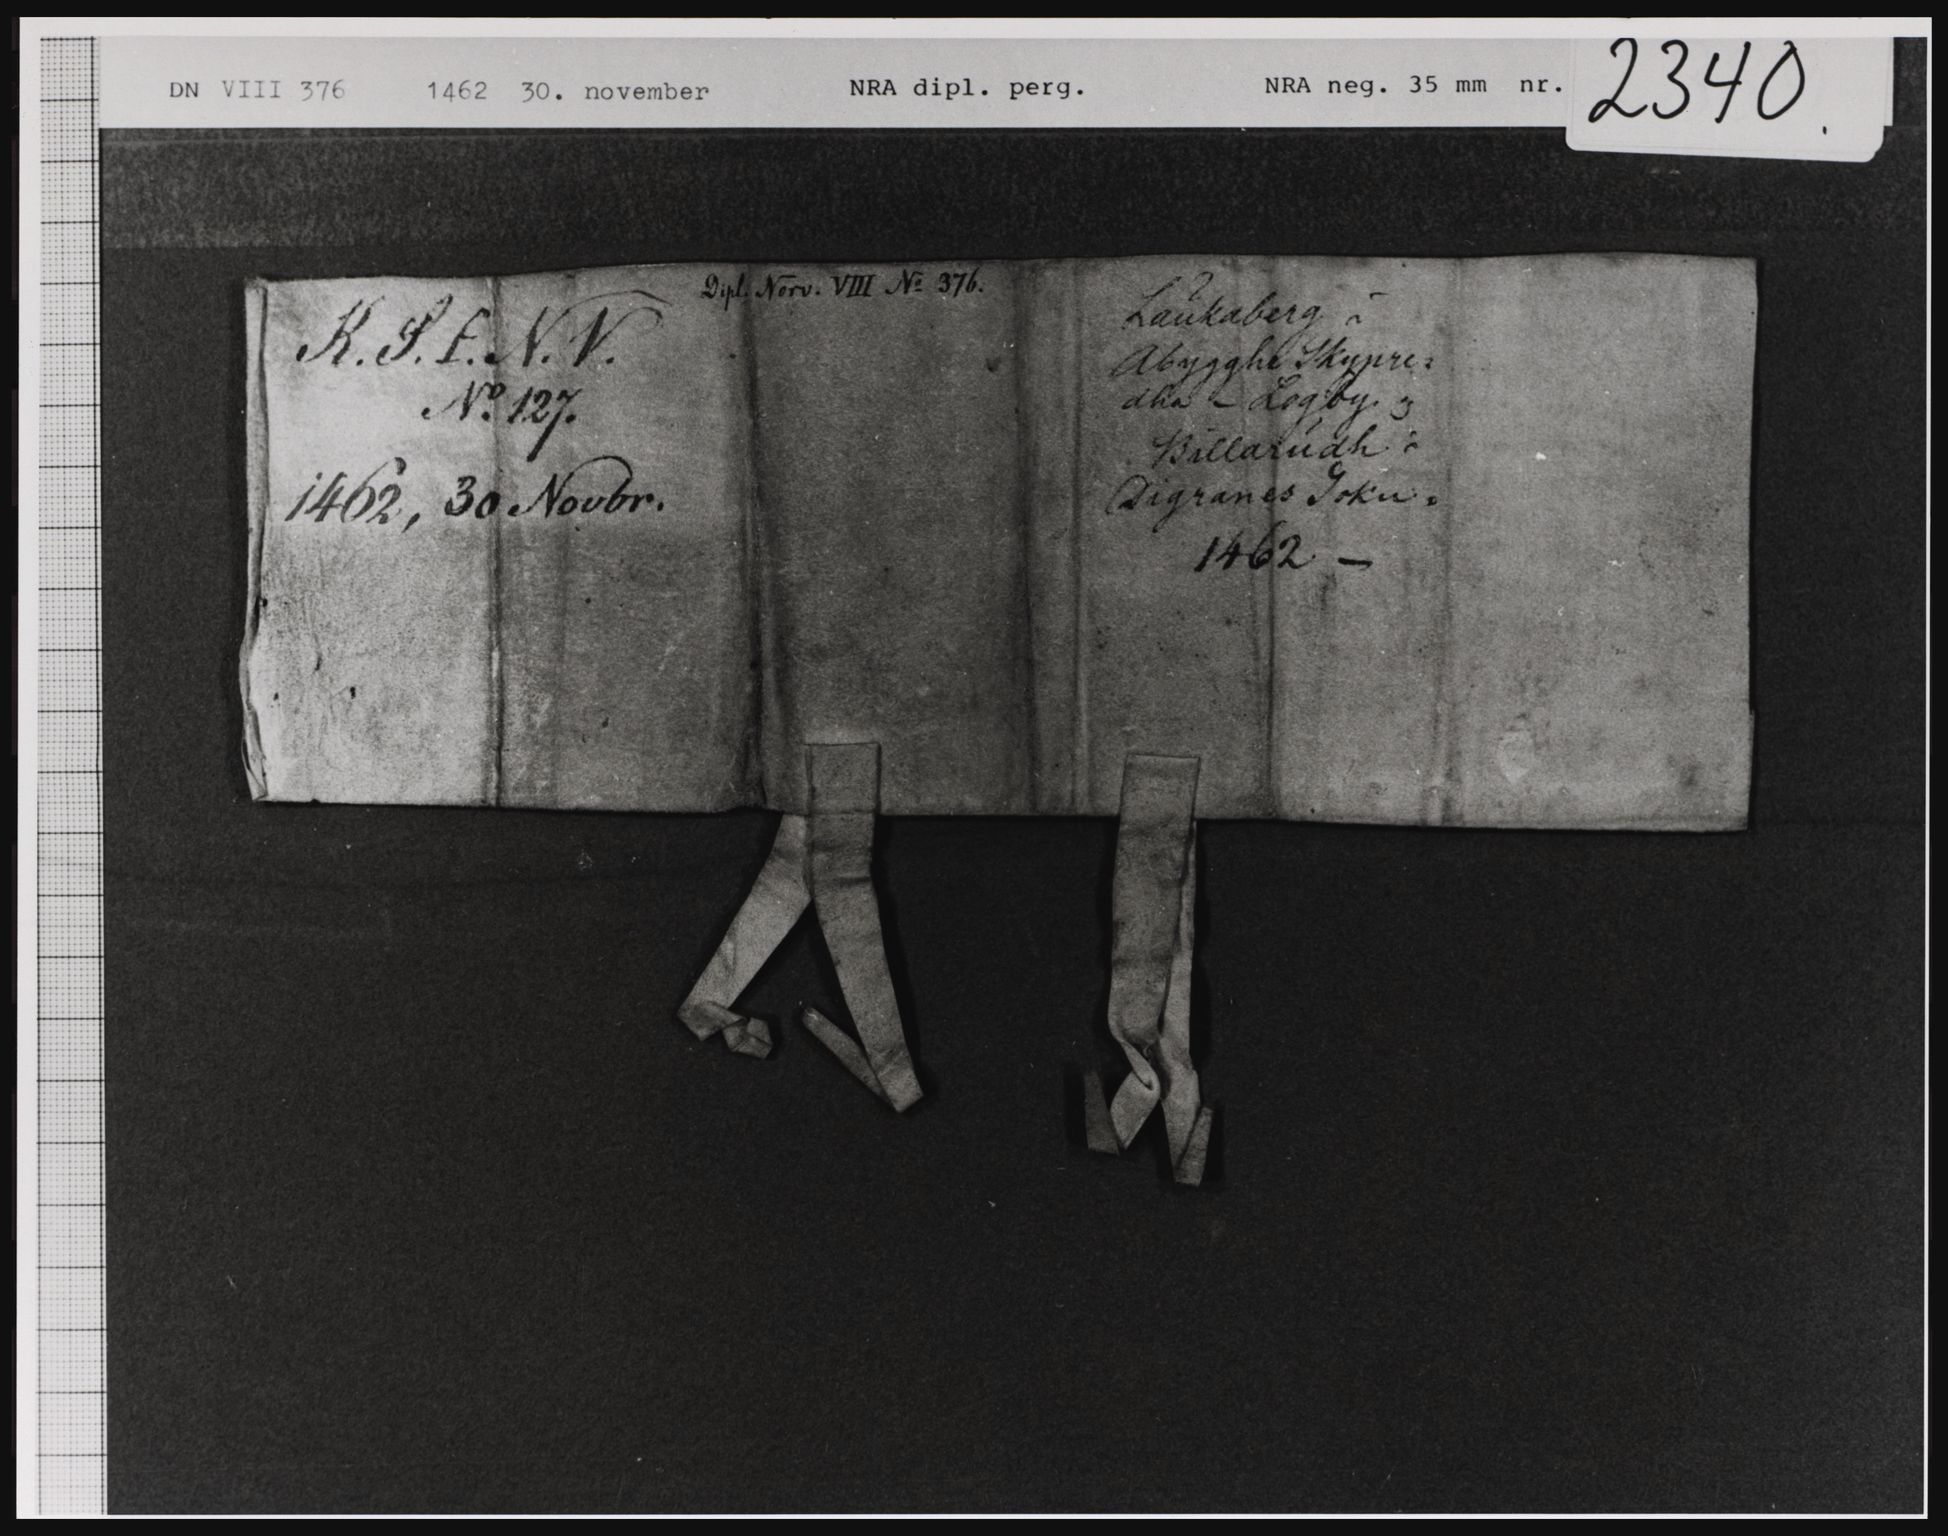 DN VIII 376 1462 30. november NRA dipl. perg. NRA neg. 35 mm nr. 2340.
Dipl. Norv. VIII No 376.
K. S. f. N. V.
No. 127.
1462, 30 Novbr.
Laukaberg i
Abygghe Skypre=
dha - Logby. og
Billarudh i
Digranes Soku.
1462 -